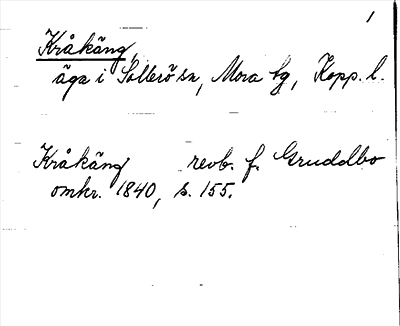 1
Kråkäng
äga i Sollerö sn, Mora tg, Kopp. l.
Kråkäng revb. f. Gruddbo
omkr. 1840, s. 155.